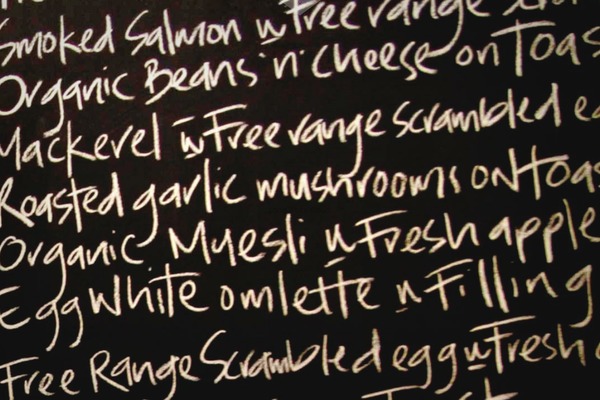 Smoked Salmon w Free range
Organic Beans 'n' cheese on Toas
Mackerel w Free range scrambled e
Roasted garlic mushrooms on Toas
Organic Muesli w Fresh apple
Egg White omlette w Filling
Free Range Scrambled egg w Fresh